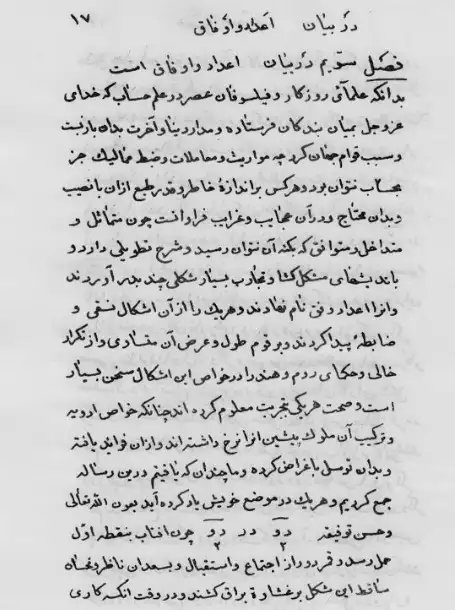 در بیان اعداد و اوفاق ۱۷
فصل سوّیم در بیان اعداد و اوفاق است
بدانکه علمای روزکار و فیلسوفان عصر در علم حساب که خدای
عزوجل بمیان بندکان فرستاده و مدار دنیا و آخرت بدان بازبست
و سبب قوام جهان کرد چه مواریث و معاملات و ضبط ممالیک جز
بحساب نتوان بود و هرکس بر اندازهٔ خاطر وقدر طبع ازان با نصیب
و بدان محتاج و درآن عجایب و غرایب فراوانست چون متماثل و
متداخل و متوافق که بکنه آن نتوان رسید و شرح تطویلی دارد و
باندیشهای مشکل کشا و تجارب بسیار شکلی چند بدر آوردند
وانرا اعداد وفق نام نهادند و هریک را از آن اشکال نسقی و
ضابطهٔ پیدا کردند و برقوم طول و عرض آن متساوی و از تکرار
خالی و حکمای روم و هند را در خواص این اشکال سخن بسیار
است و صحت هریکی بتجربت معلوم کرده اند چنانکه خواص ادویه
و ترکیب آن ملوک پیشین انرا نرخ داشته اند و ازان فواید یافته
و بدان توسل باغراض کرده و ما چندان که یافتیم درین رساله
جمع کردیم و هریک در موضع خویش یاد کرده آید بعون الله تعالی
وحسن توفیقه دو۲ در دو۲ چون افتاب بنقطه اوّل
حمل رسد و قمر دور از اجتماع و استقبال و بسعدان ناظر و نحسان
ساقط این شکل بر غشاوهٔ براق کشند و در وقت انکسه کاری